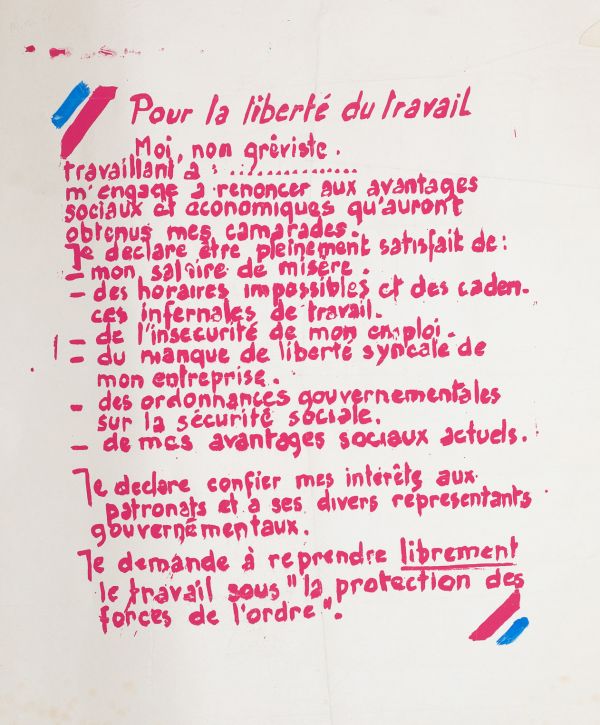 Pour la liberté du travail
Moi non gréviste.
travaillant à : ...............
m'engage a renoncer aux avantages
sociaux et économiques qu'auront
obtenus mes camarades.
Je déclare être pleinement satisfait de :
- mon salaire de misère.
- des horaires impossibles et des caden.
ces infernales de travail.
- de l'insecurité de mon emploi.
- du manque de liberté syncale de
mon entreprise.
- des ordonnances gouvernementales
sur la sécurité sociale.
- de mes avantages sociaux actuels.
Je declare confier mes intérêts aux
patronats et a ses divers représentants
gouvernementaux.
Je demande à reprendre librement
le travail sous "la protection des
forces de l'ordre".